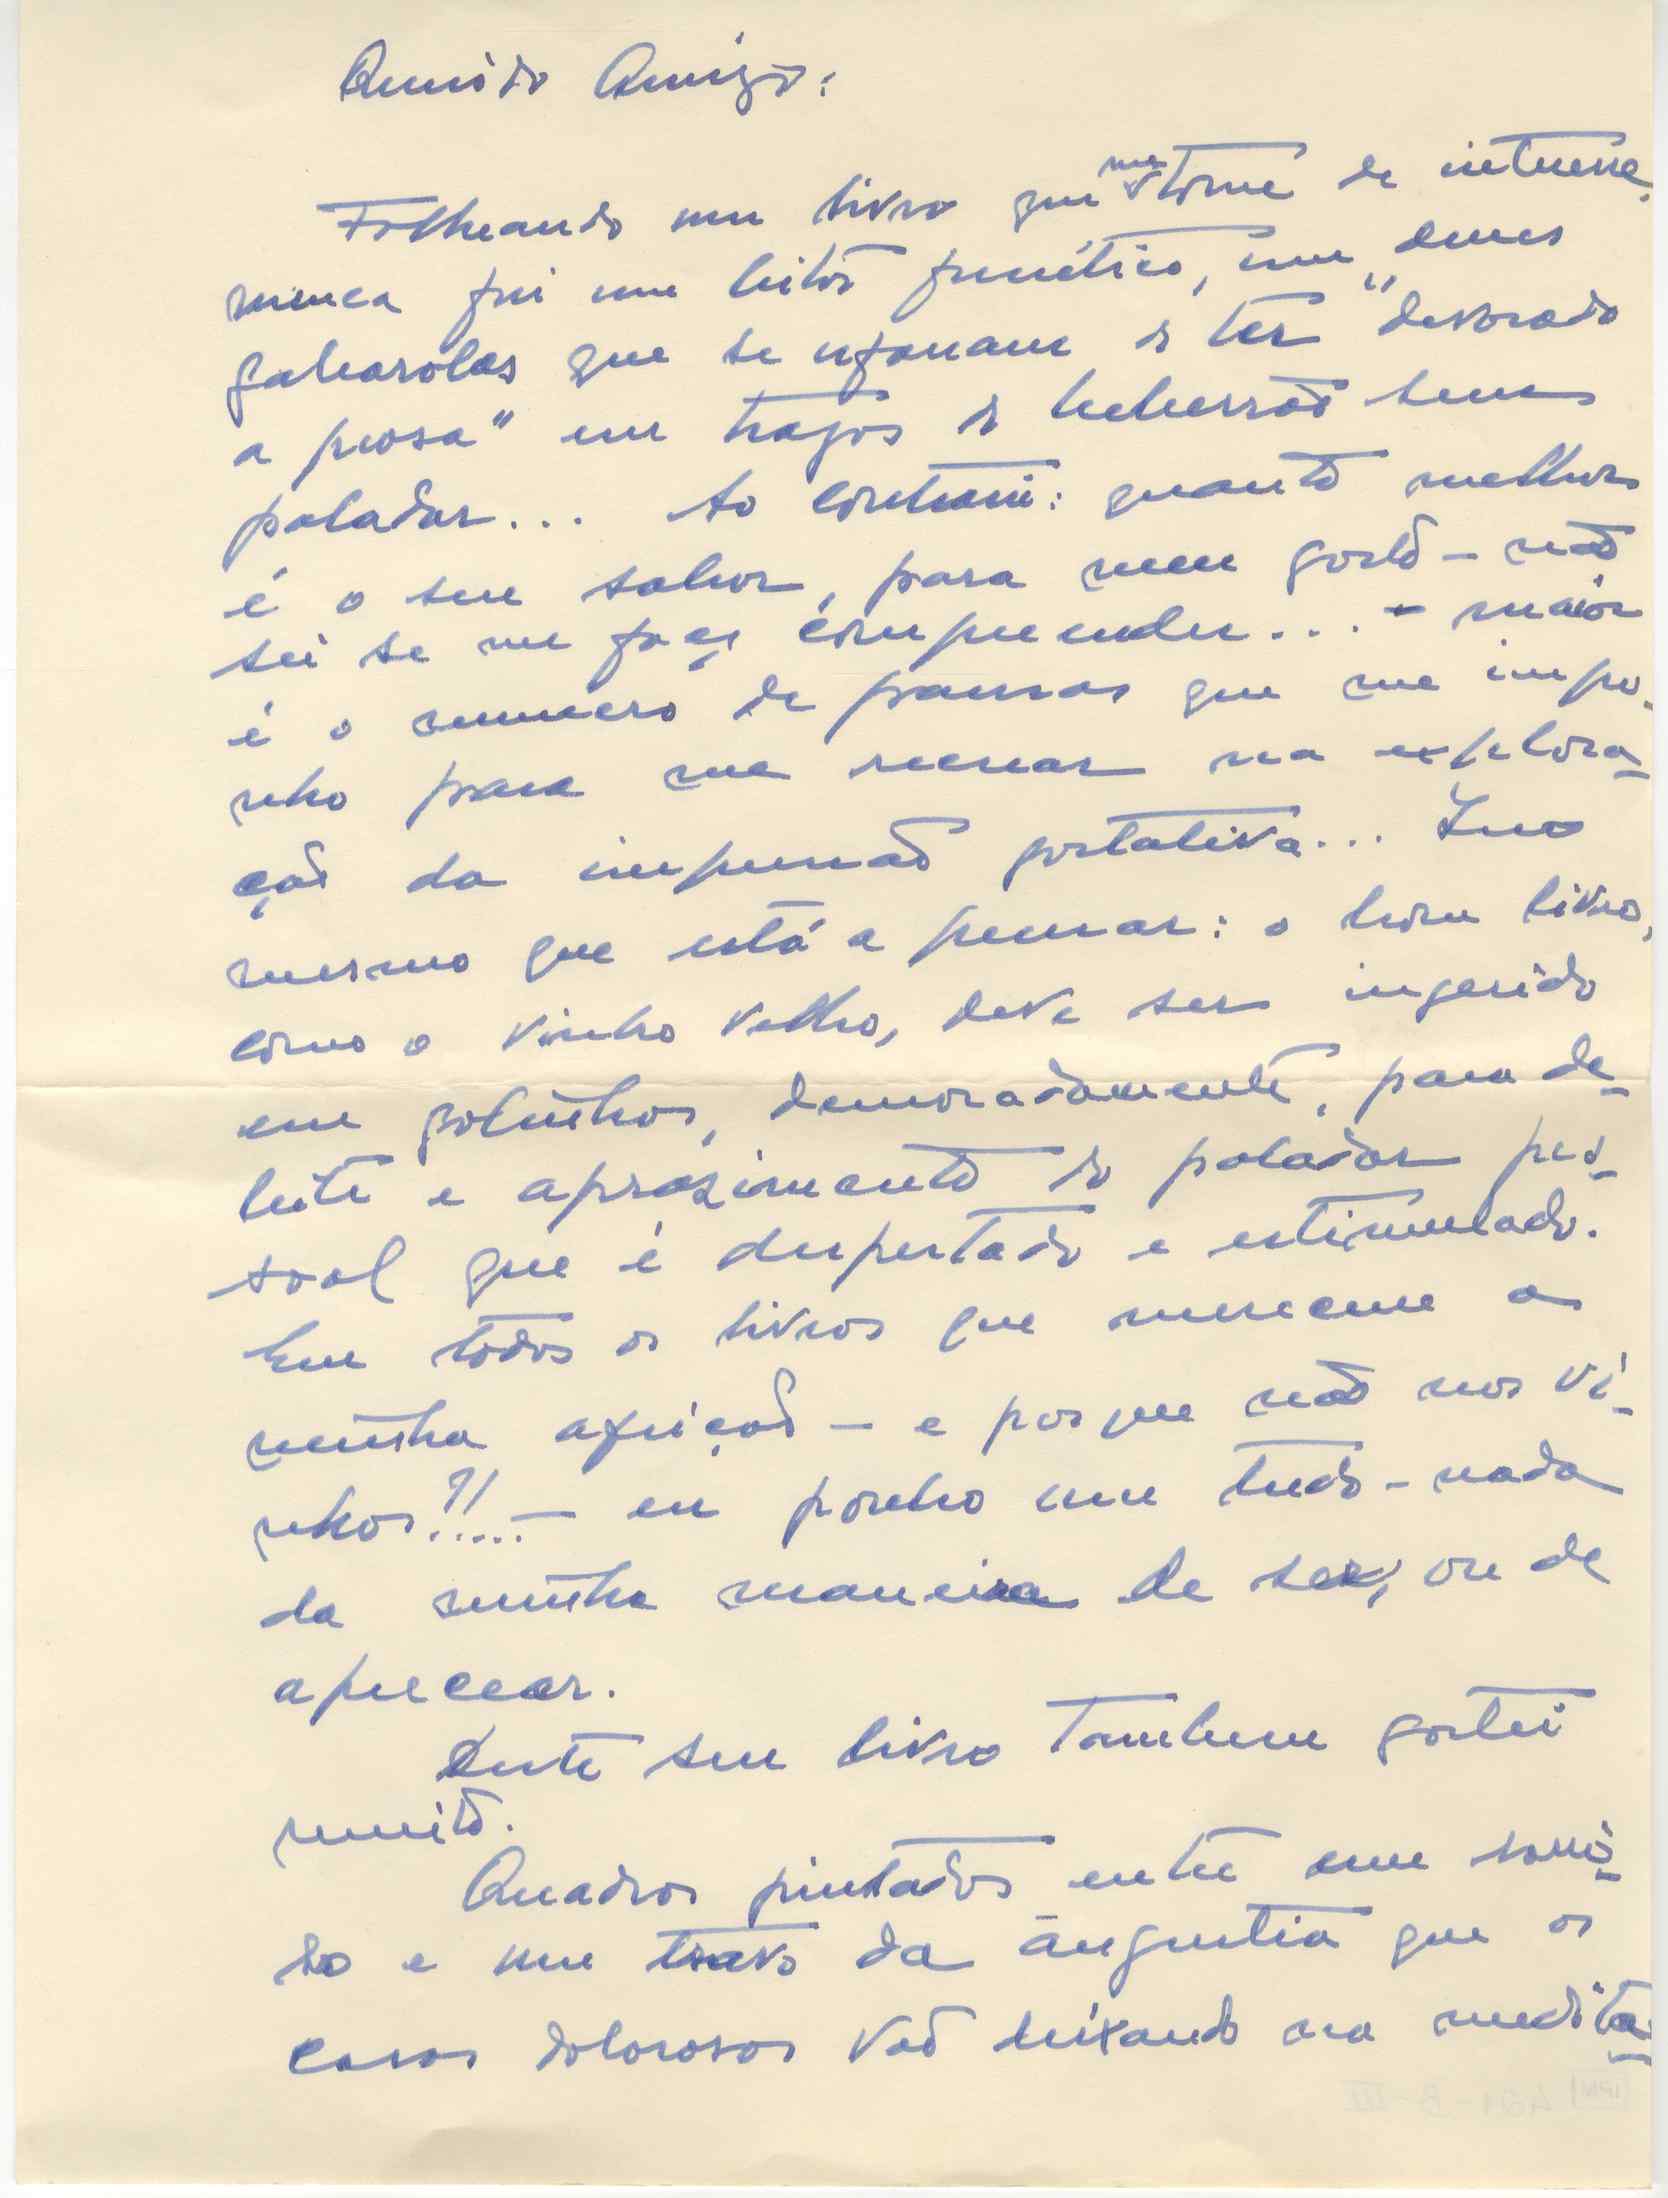 Querido Amigo:
Folheando um livro que me tome de interesse,
nunca fui um leitor frenético, um desses
gabarolas que se ufanam de ter "devorado
a prosa" em tragos de beberrão sem
paladar... Ao contrario: quanto melhor
é o seu sabor, para meu gosto - não
sei se me faço compreender... - maior
é o numero de pausas que me impo-
nho para me recrear na explora-
ção da impressão gostativa... Isso
mesmo que está a pensar: o bom livro,
como o vinho velho, deve ser ingerido
em golinhos, demoradamente, para de-
leite e aprazimento do paladar pes-
soal que é despertado e estimulado.
Em todos os livros que merecem a
minha afeição - e porque não nos vi-
nhos?!.... - eu ponho um tudo-nada
da minha maneira de ser, ou de
apreciar.
Deste seu livro tambem gostei
muito.
Quadros pintados entre um sorri-
so e um travo da angustia que os
casos dolorosos vão deixando na medita-